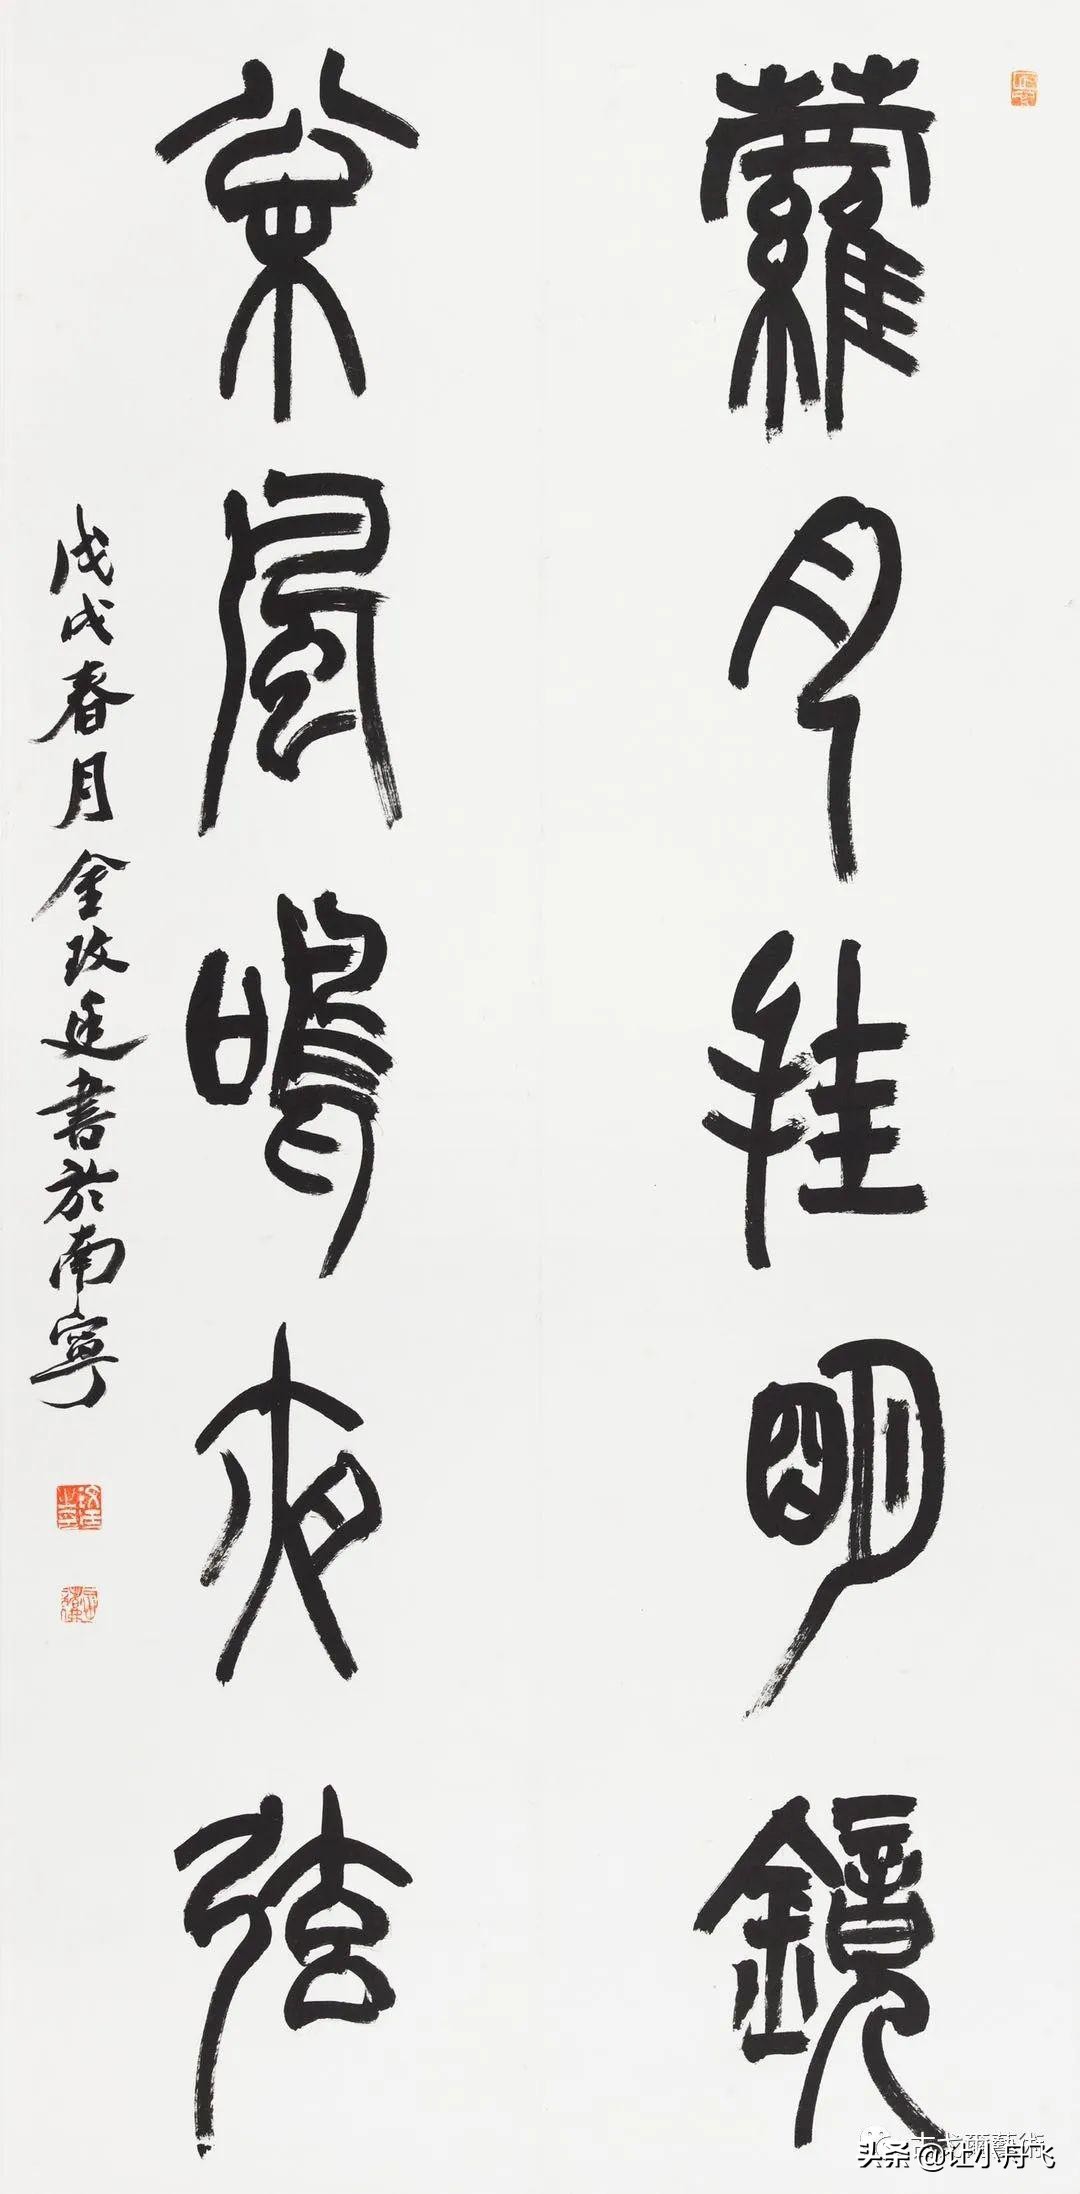 蘿月挂明鏡
松風鳴夜弦
戊戌春月金廷書於南寧
头条